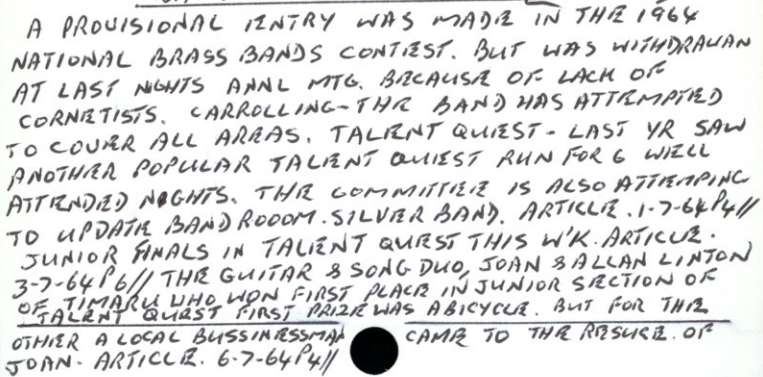 A PROVISIONAL ENTRY WAS MADE IN THE 1964
NATIONAL BRASS BANDS CONTEST. BUT WAS WITHDRAWAN
AT LAST NIGHTS ANNL MTG. BECAUSE OF LACK OF
CORNETISTS. CARROLLING-THE BAND HAS ATTEMPTED
TO COVER ALL AREAS. TALENT QUEST- LAST YR SAW
ANOTHER POPULAR TALENT QUEST RUN FOR 6 WELL
ATTENDED NIGHTS. THE COMMITTEE IS ALSO ATTEMPING
TO UPDATE BAND ROOOM. SILVER BAND. ARTICLE. 1-7-64 P4//
JUNIOR FINALS IN TALENT QUEST THIS W'K. ARTICLE.
3-7-64 P6// THE GUITAR & SONG DUO, JOAN & ALLAN LINTON
OF TIMARU WHO WON FIRST PLACE IN JUNIOR SECTION OF
TALENT QUEST FIRST PRIZE WAS A BICYCLE. BUT FOR THE
OTHER A LOCAL BUSSINESSMAN CAME TO THE RESUCE. OF
JOAN. ARTICLE. 6-7-64 P4//